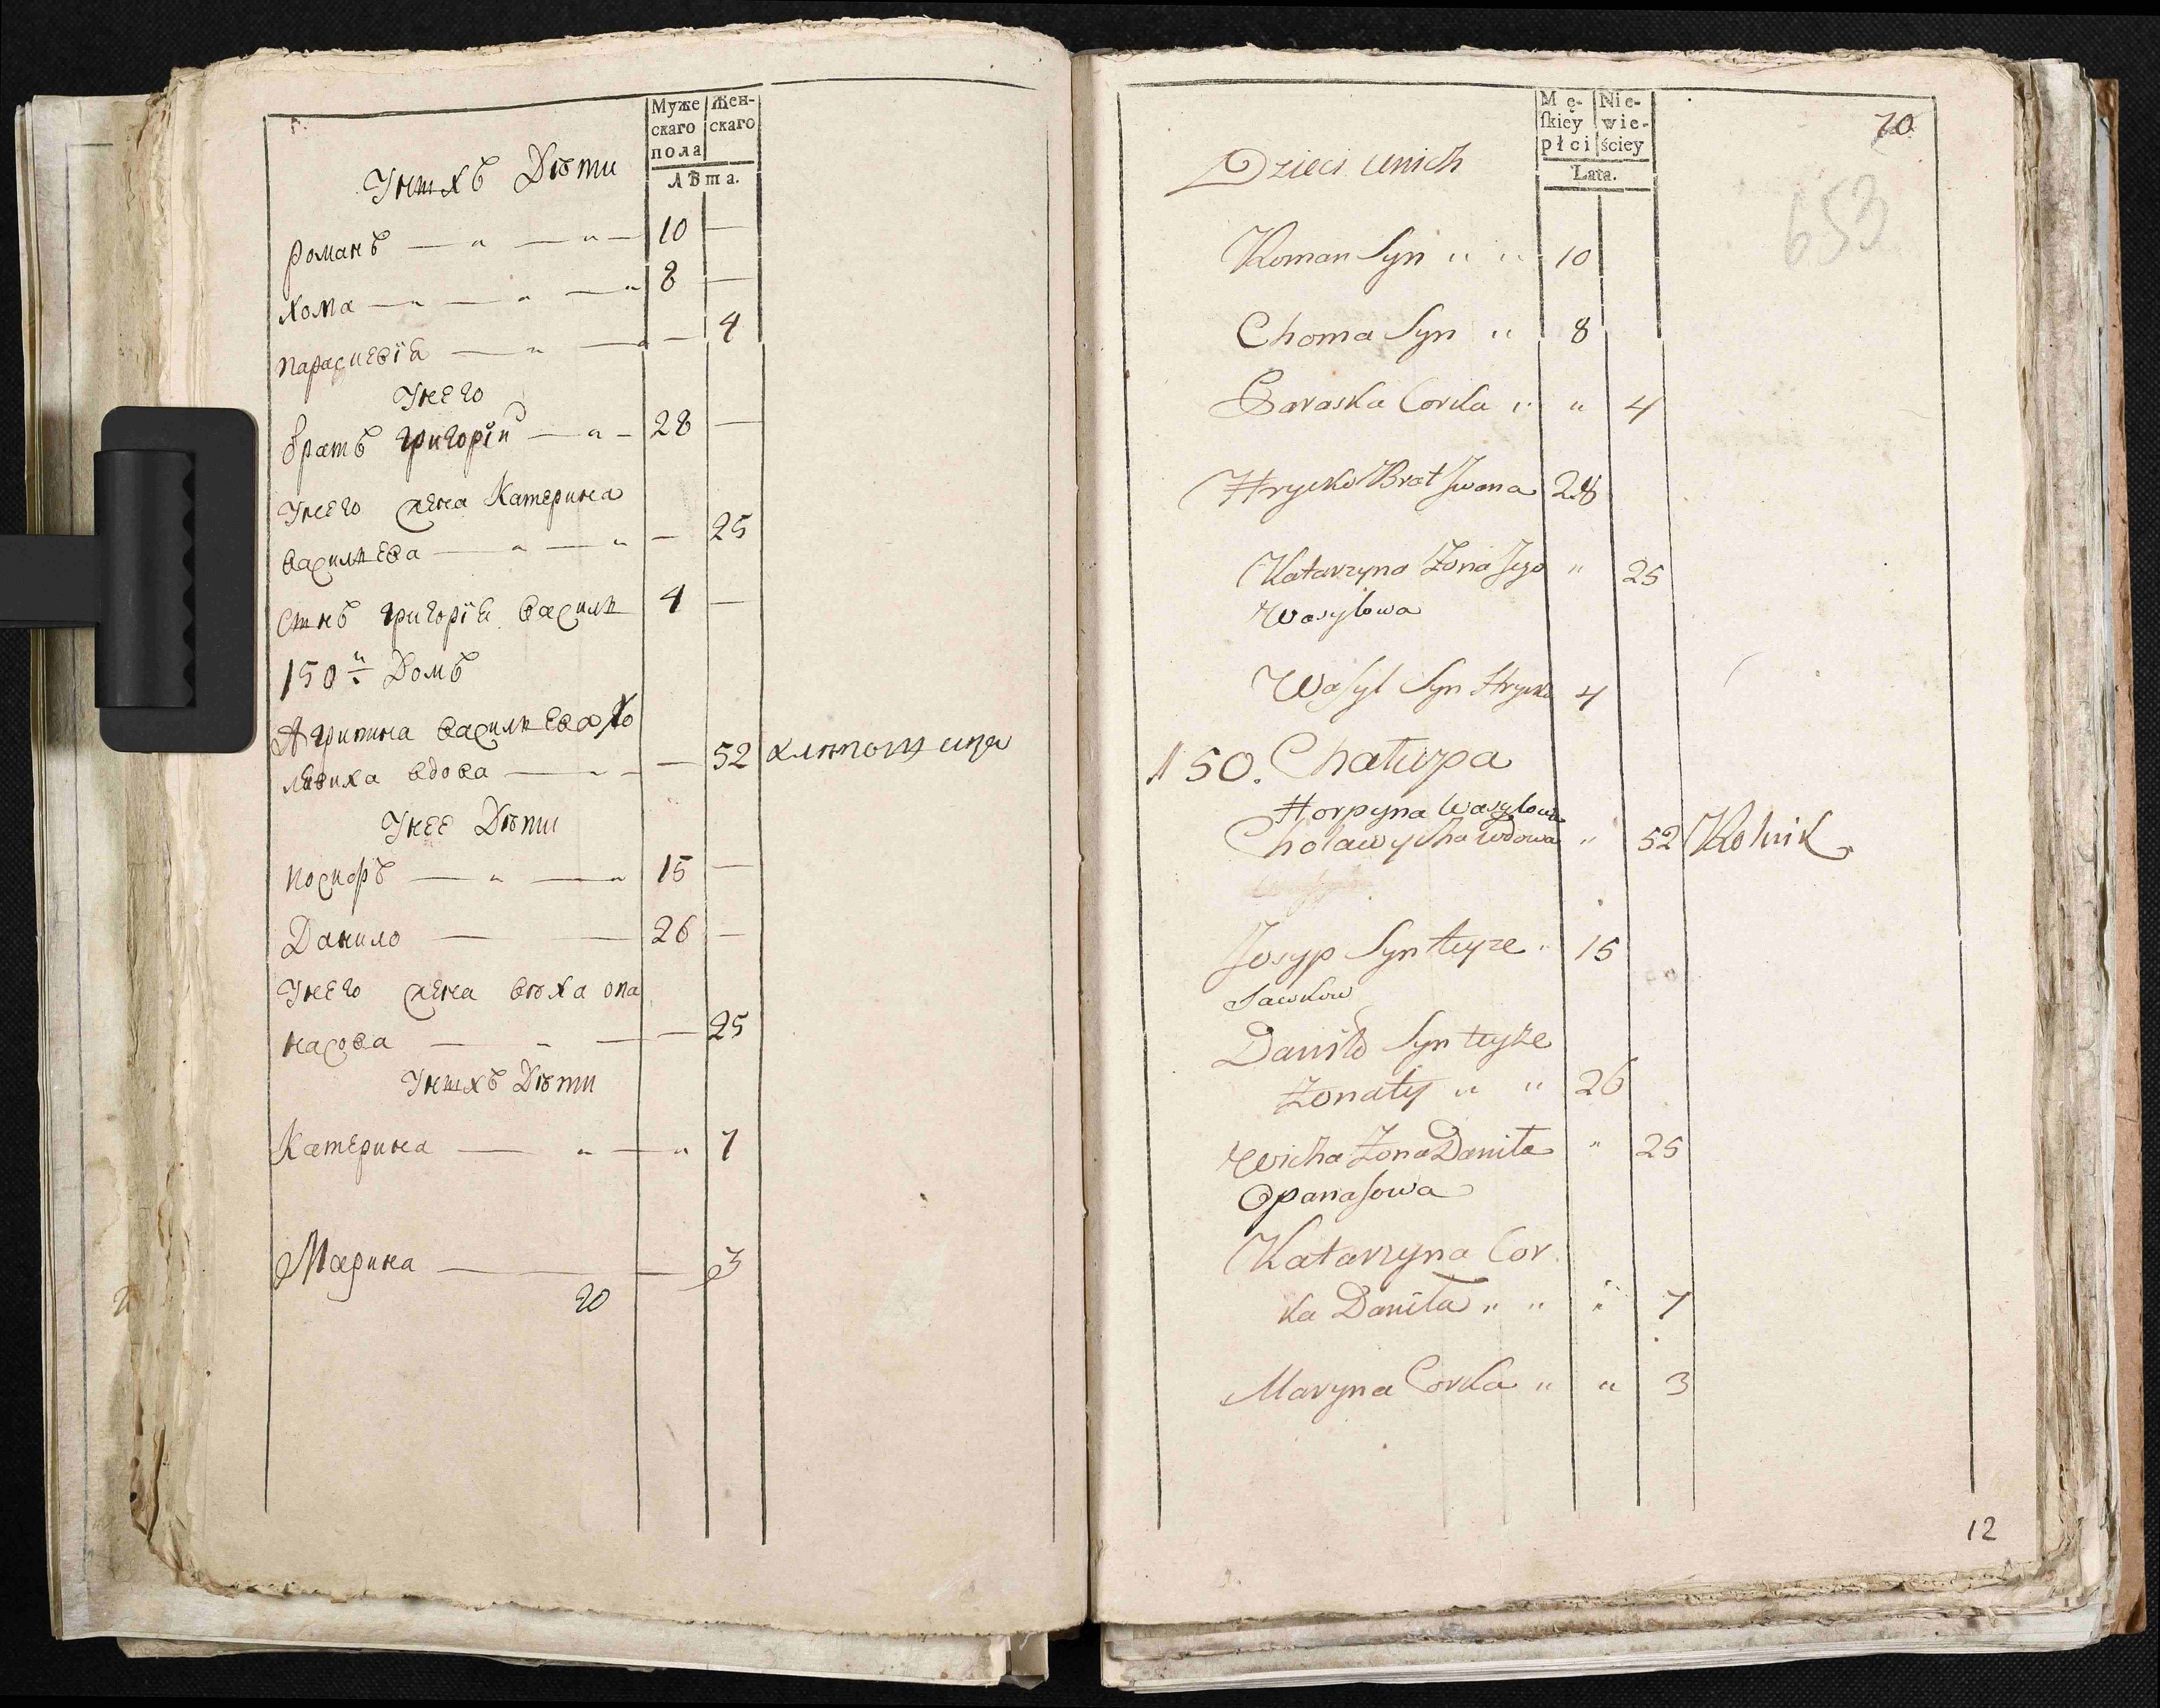 Муже
скаго
пола
Жен-
скаго
Лѣта.
Унихъ Дѣти
Романъ — " — " — 10 —
Хома — " — " — " 8 —
Параскевія — " — — 4
Унего
братъ Григорій — " — 28 —
Унего жена Катерина
василиева — " — " — 25
Сынъ Григорія Василь 4 —
150й Домъ
Агрипина василиева Хо
лявиха вдова — " — — 52
Унее Дѣти
иосифъ — " — " 15 —
Данило — — 26 —
Унего жена вѣха опа
насова — - — — 25
Унихъ Дѣти
Катерина — " — " 7
Марина — — 3
20
Mę-
ſkiey
płci
Nie-
wie-
ściey
Lata.
70
653
Dzieci unich
Roman Syn " " 10
Choma Syn " 8
Paraska Corka " " 4
Hrycko Brat Jwana 28
Katarzyna Zona Jego " 25
Wasylowa
Waſyl Syn Hrycka 4
150. Chałupa
Horpyna Wasylowa
Cholawycha wdowa " 52 Rolnik
Josyp Syn teyze " 15
Sawkow
Daniło Syn teyze
Zonaty " " 26
Wicha Zona Daniła " 25
Opanaſowa
Katarzyna Cor
ka Daniła " " " 7
Maryna Corka " " 3
12